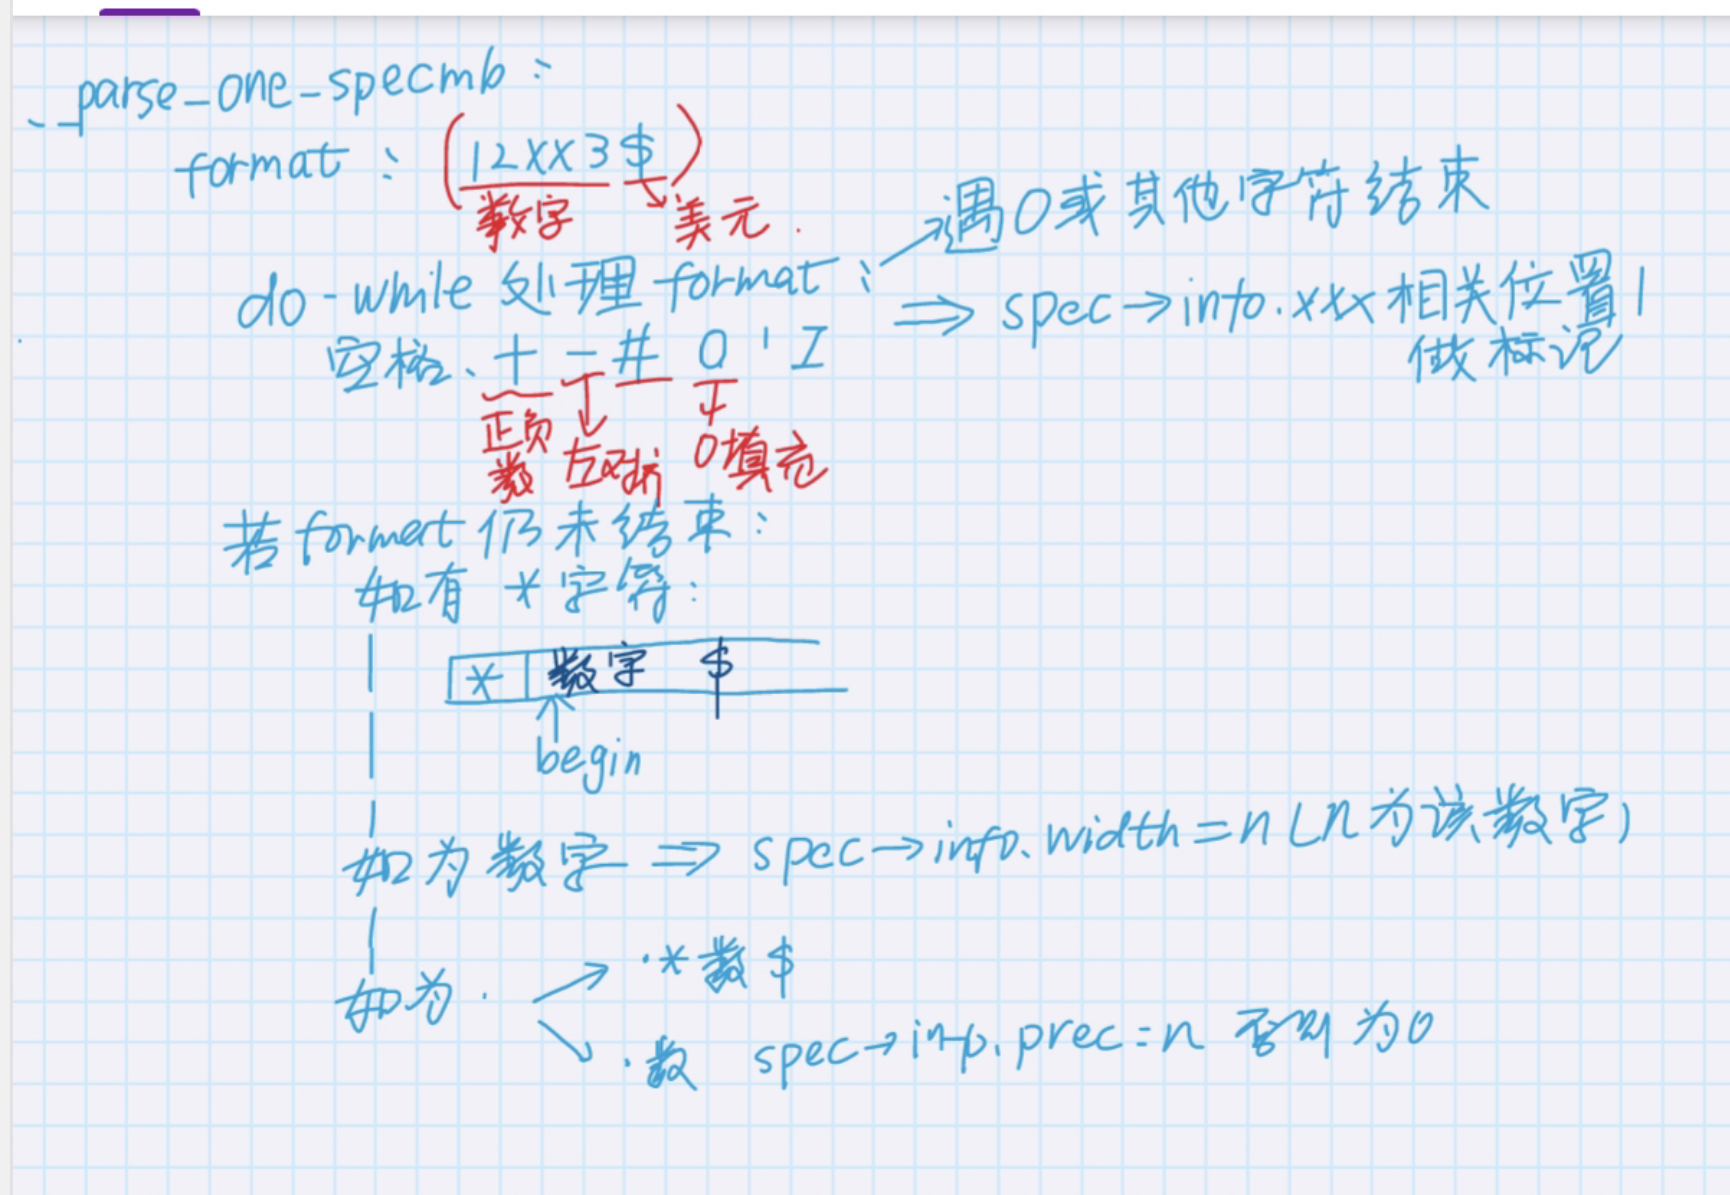 __parse_one_specmb:
format: (12XX3$)
数字 美元.
遇0或其他字符结束
do-while 处理 format:
⇒ spec→info.xxx相关位置1
做标记
空格、+ - # 0 ' I
正负数 左对折 0填充
若format仍未结束:
如有 *字符:
* 数字 $
begin
如为数字 ⇒ spec→info.width=n (n为该数字)
如为. .*数$
.数 spec→info.prec=n 否则为0